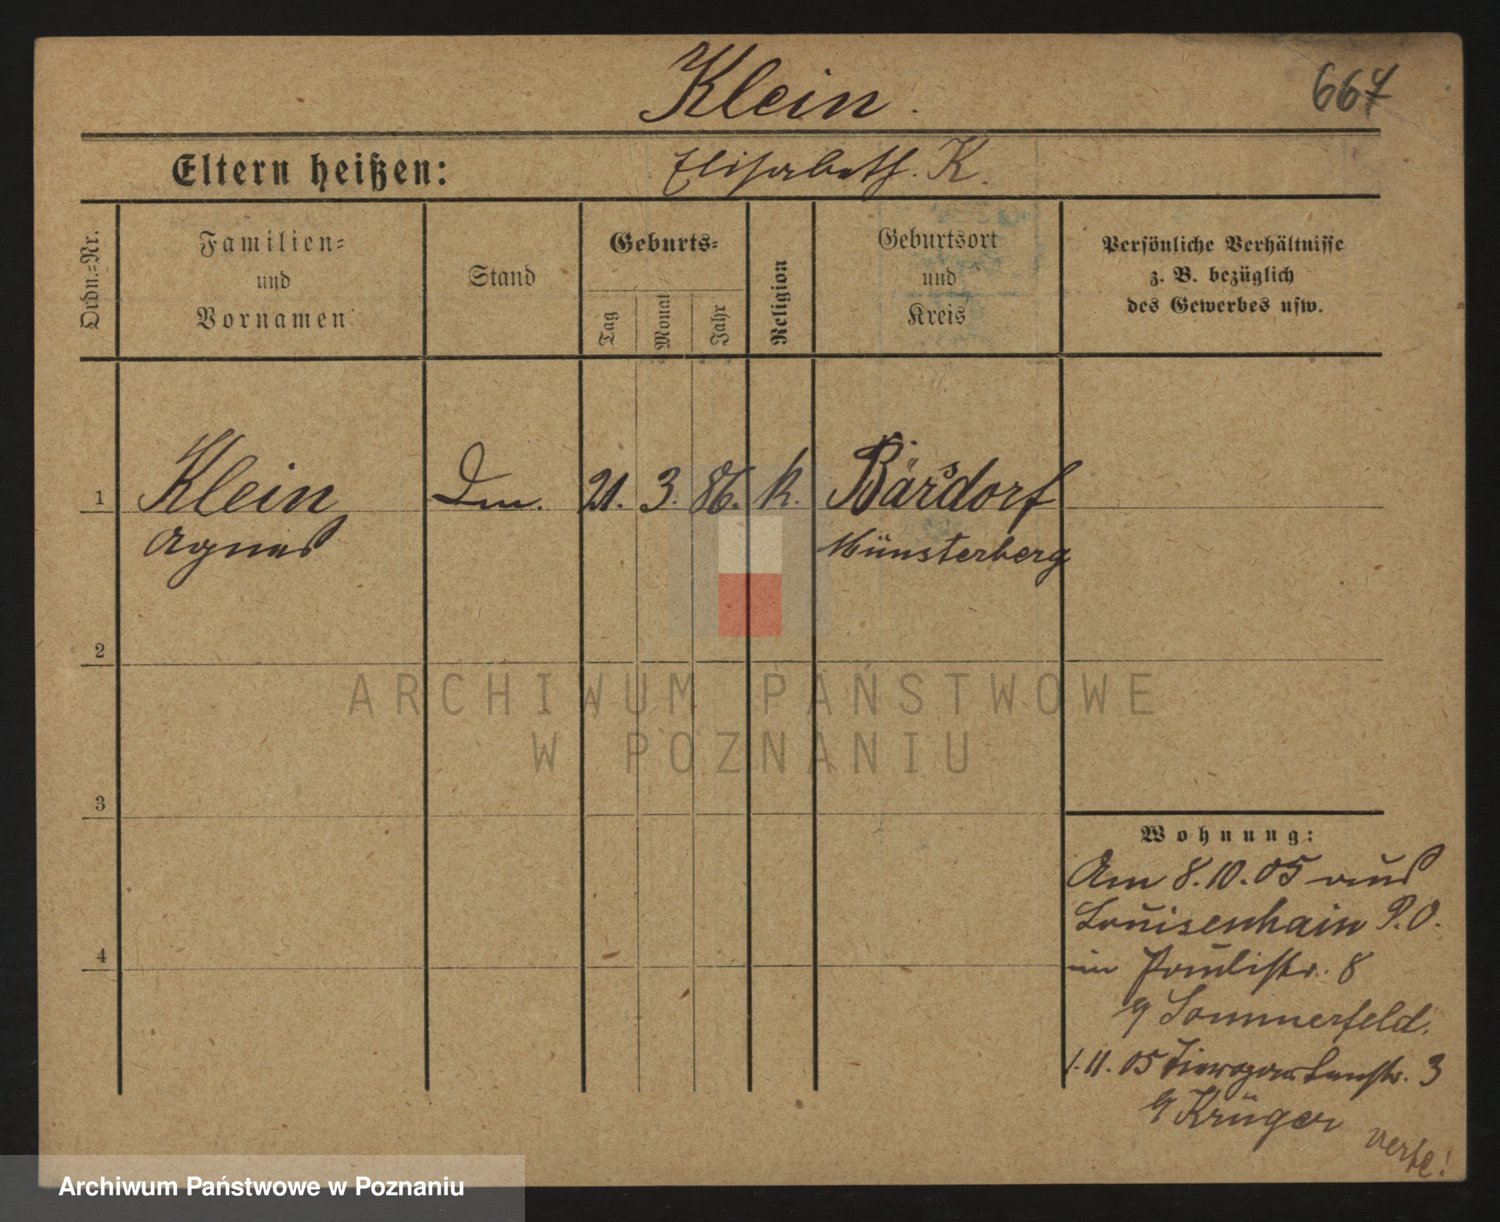 Klein.
667
Eltern heißen:
Elisabeth. K.
Ordn.=Nr.
Familien=
und
Vornamen
Stand
Geburts=
Tag
Monat
Jahr
Religion
Geburtsort
und
Kreis
Persönliche Verhältnisse
z. B. bezüglich
des Gewerbes usw.
1
Klein
Agnes
21. 3. 86. k.
Bärsdorf
Münsterberg
2
ARCHIWUM PAŃSTWOWE
W POZNANIU
3
4
Wohnung:
Am 8.10.05 aus
Louisenhain P.O.
in Paulistr. 8
Sommerfeld.
1.11.05 Tiergartenstr. 3
Krüger
verte!
Archiwum Państwowe w Poznaniu